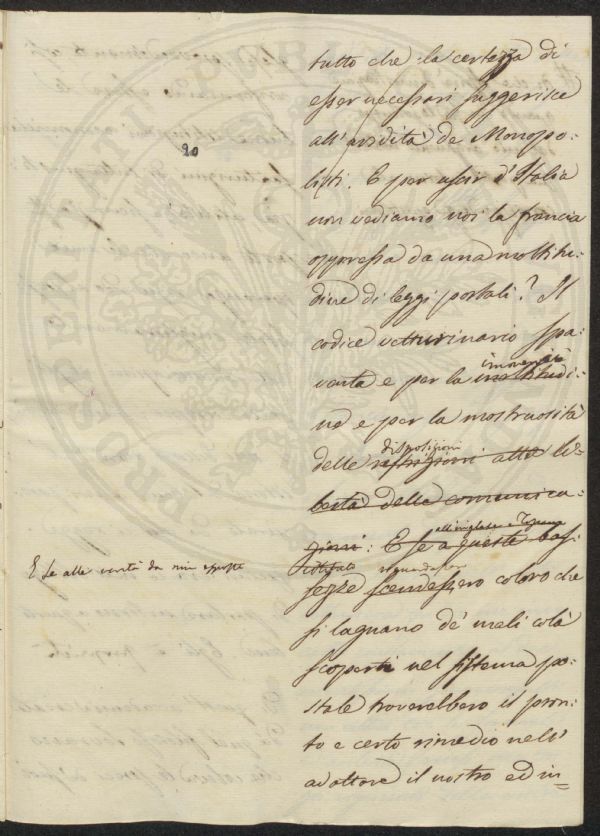 20
tutto che la certezza di
esser necessarj suggerisce
all'avidità de Monopo-
listi. E per uscir d'Italia
non vediamo noi la francia
oppressa da una moltitu-
dine di leggi postali? Il
codice vetturinario spa-
venta e per la moltitudi-
ne e per la mostruosità
disposizioni
delle restrizioni alla li-
bertà delle comunica-
zioni: E se a queste bas-
E se alle verità da noi esposte
sezze scendessero coloro che
si lagnano de' mali colà
scoperti nel sistema po-
stale troverebbero il pron-
to e certo rimedio nell'
adottare il nostro ed in=